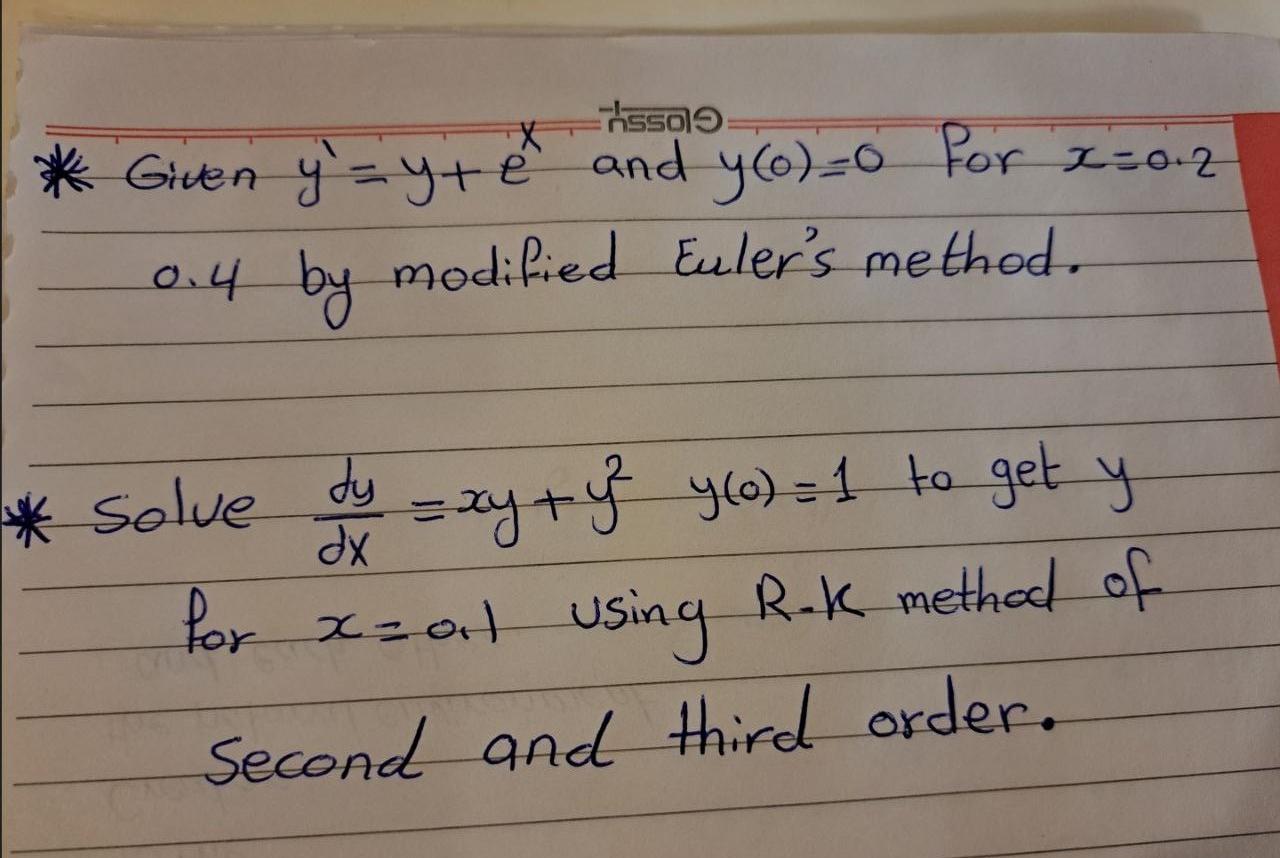 Glossy
* Given y' = y + e^x and y(0)=0 for x=0.2
0.4 by modified Euler's method.
* Solve dy/dx = xy + y² y(0) = 1 to get y
for x=0.1 using R-K method of
Second and third order.